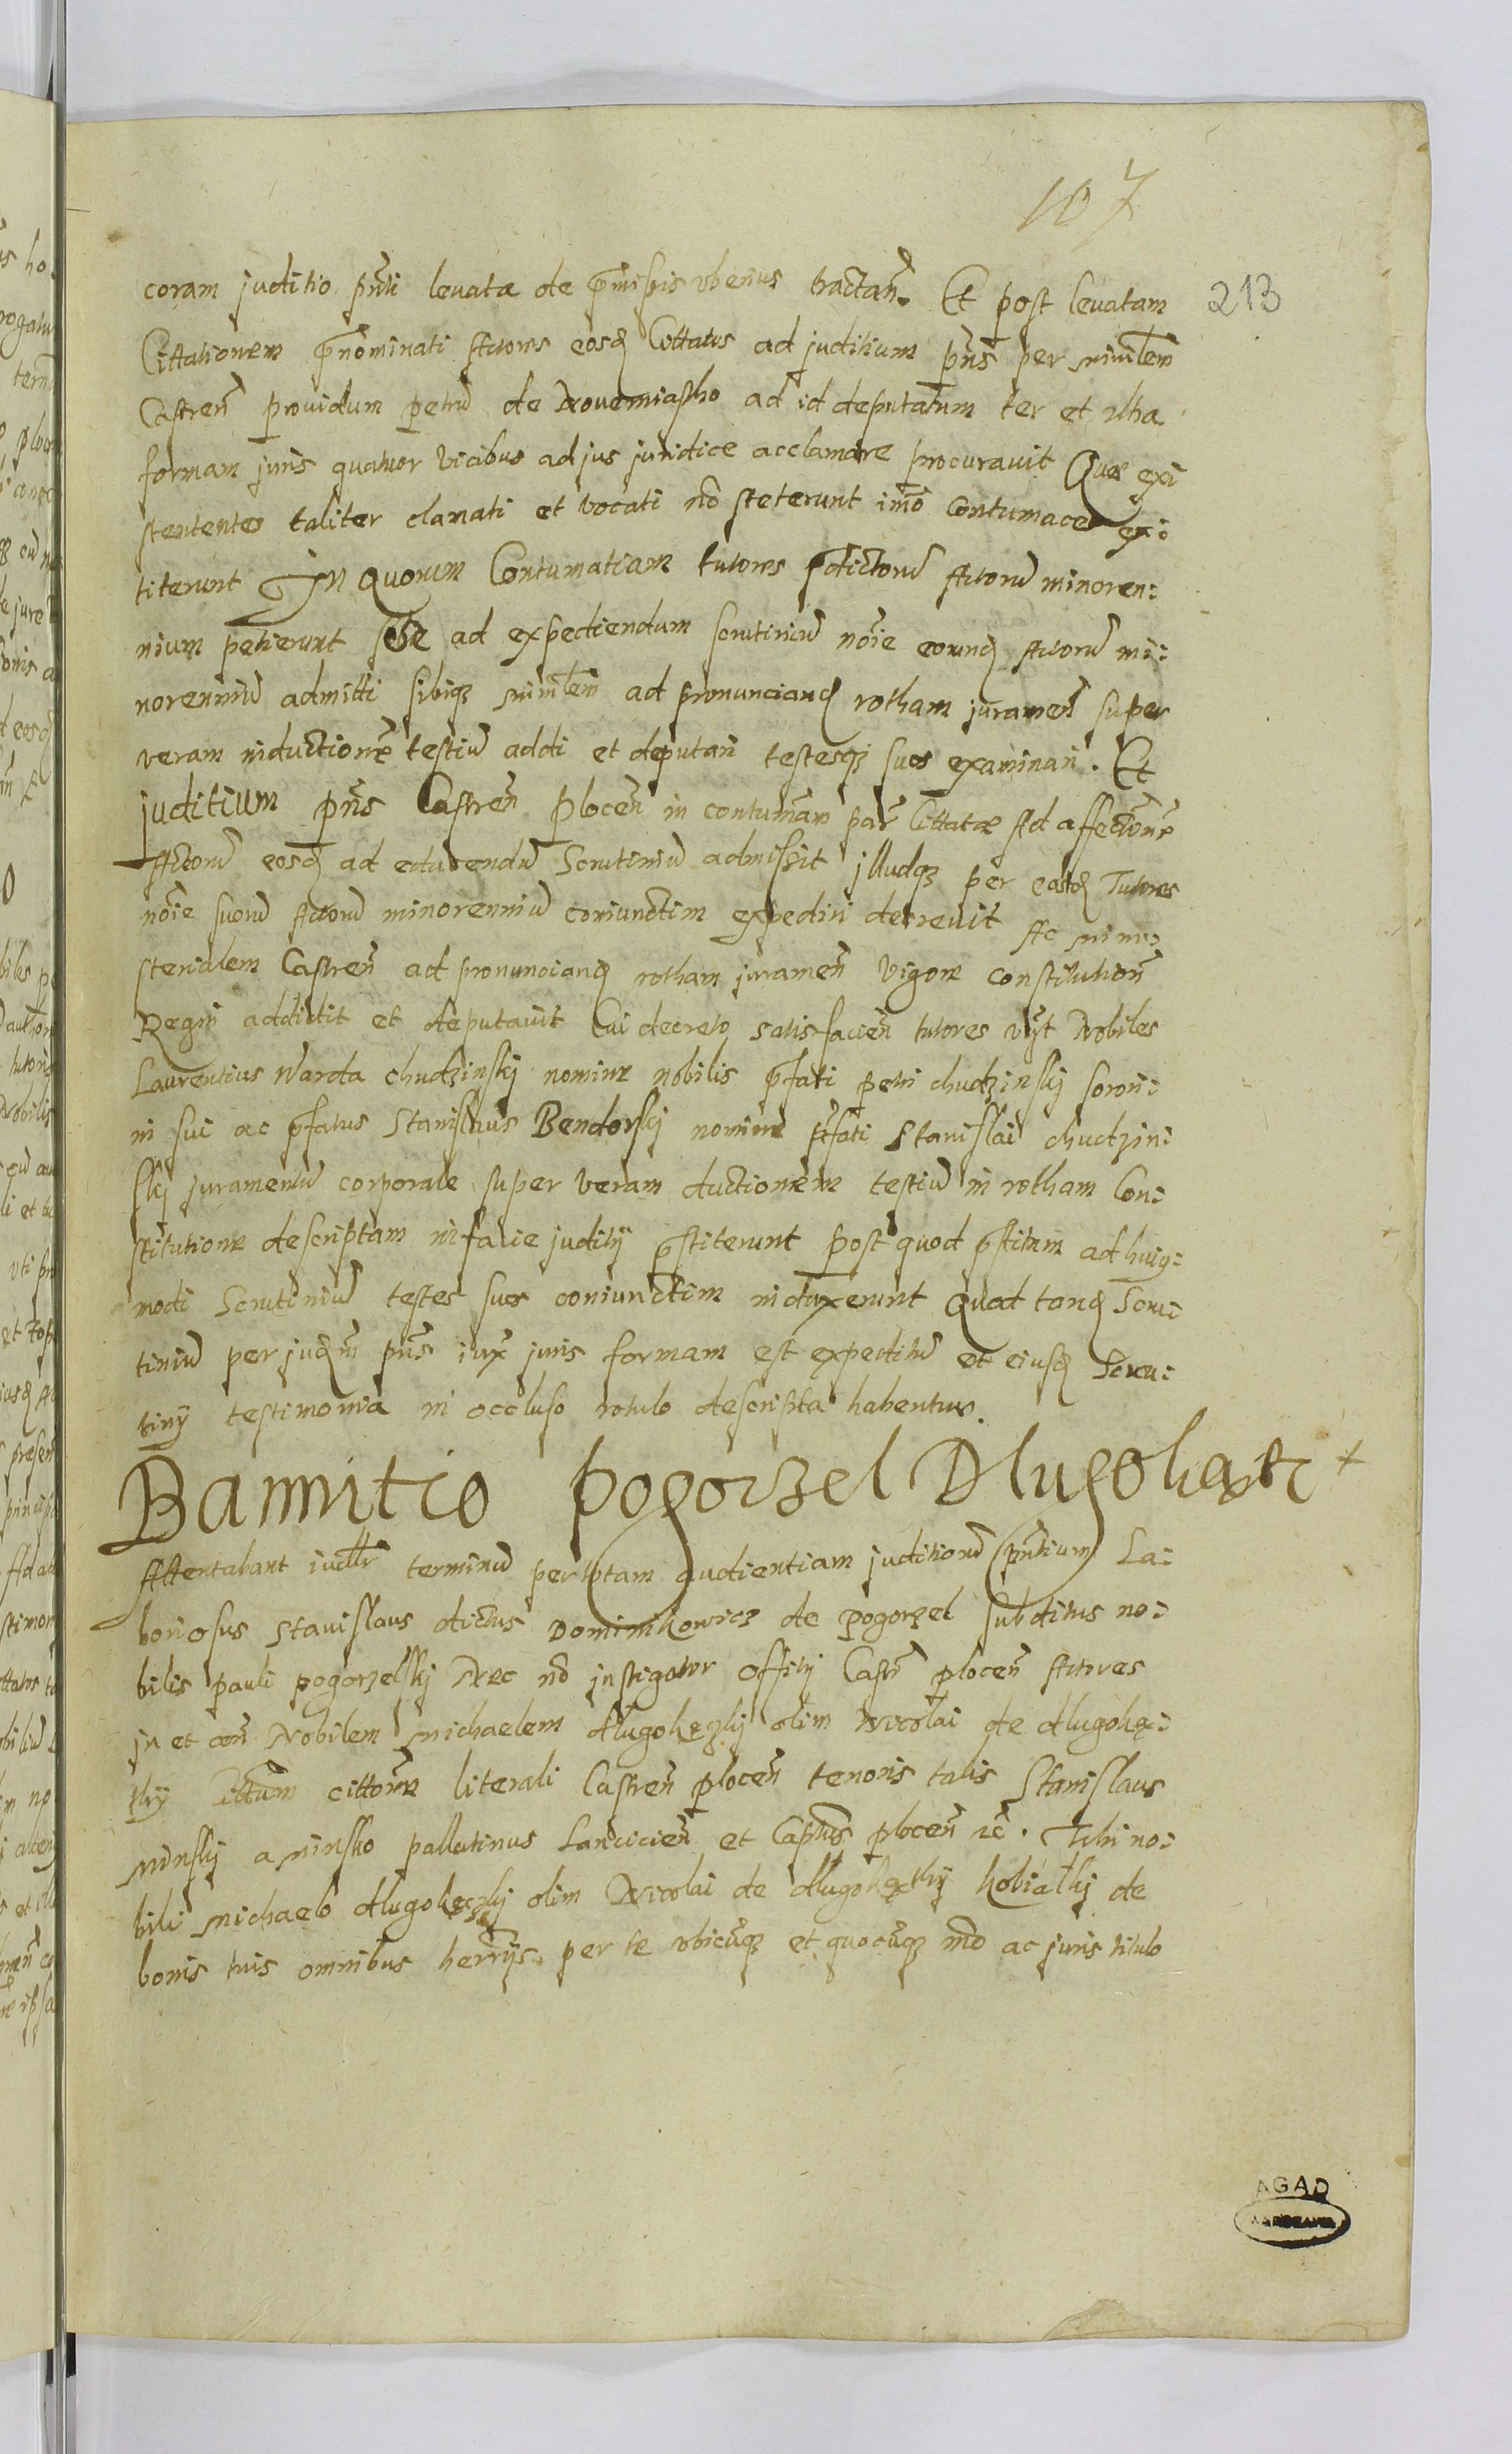 107
213
coram juditio pñti levatæ de p̃missis vberius tractañ. Et post levatam
Cittationem p̃nominati Actores eosd Cittatos ad juditium pñs per ministlem
Castreñ providum petrũ de Novemiastho ad id deputatum ter et vltra
formam juris quatuor vicibus ad jus juridice acclamare procuravit Qui exi
stentes taliter clamati et vocati nõ steterunt imõ Contumaces exi:
titerunt In quorum Contumatiam tutores p̃dictorũ Actorũ minoren:
nium petierunt sese ad expediendum scrutiniũ noĩe eorund Actorũ mi:
norenniũ admitti sibiqz ministlem ad pronunciand rotham jurameñ super
veram inductionẽ testiũ addi et deputari testesqz suos examinari. Et
juditium pñs Castreñ ploceñ in contumãm par Cittatæ Ad affectõnẽ
Actorũ eosd ad educendũ Scrutiniũ admissit jlludqz per eosd Tutores
noĩe suorũ Actorũ minorenniũ coniunctim expediri decrevit Ac mini:
sterialem Castreñ ad pronunciand rotham jurameñ vigore constitutioñ
Regni addidit et deputavit Cui decreto satisfacieñ tutores vt Nobiles
Laurentius Warda chudzinskj nomine nobilis p̃fati petri chudzinskj soroni:
ni sui ac p̃fatus Stanislaus Bendorskj nomine p̃fati Stanislai chudzin:
skj juramentũ corporale super veram ductionem testiũ in rotham Con:
stitutione descriptam in facie juditij p̃stiterunt post quod p̃stitum ad huig:
modi Scrutiniũ testes suos coniunctim induxerunt Quod tand Scru:
tiniũ per judm̃ pñs iux̃ juris formam est expeditũ et eiusd Scru:
tinij testimonia in occluso rotulo descripta habentur.
Bannitio pogorzel Dlugolia +
Attentabant iudllr terminũ per totam audientiam juditiorũ pñtium La:
boriosus Stanislaus dictus Dominikowicz de pogorzel subditus no:
bilis pauli pogorzelskj Nec nõ jnstigator offitij Castreñ ploceñ Actores
jn et coñ Nobilem Michaelem dlugolęczkj olim Nicolai de dlugolę:
kij Cittum cittõne literali Castreñ plocen tenoris talis Stanislaus
Minskj a Minsko pallatinus Lancicieñ et Captũs plocen zc. Tibi no:
bili Michaeli dlugolęczkj olim Nicolai de dlugolękij kobiatkj de
bonis tuis omnibus herrijs per te vbicũqz et quocũqz mõ ac juris titulo
AGAD